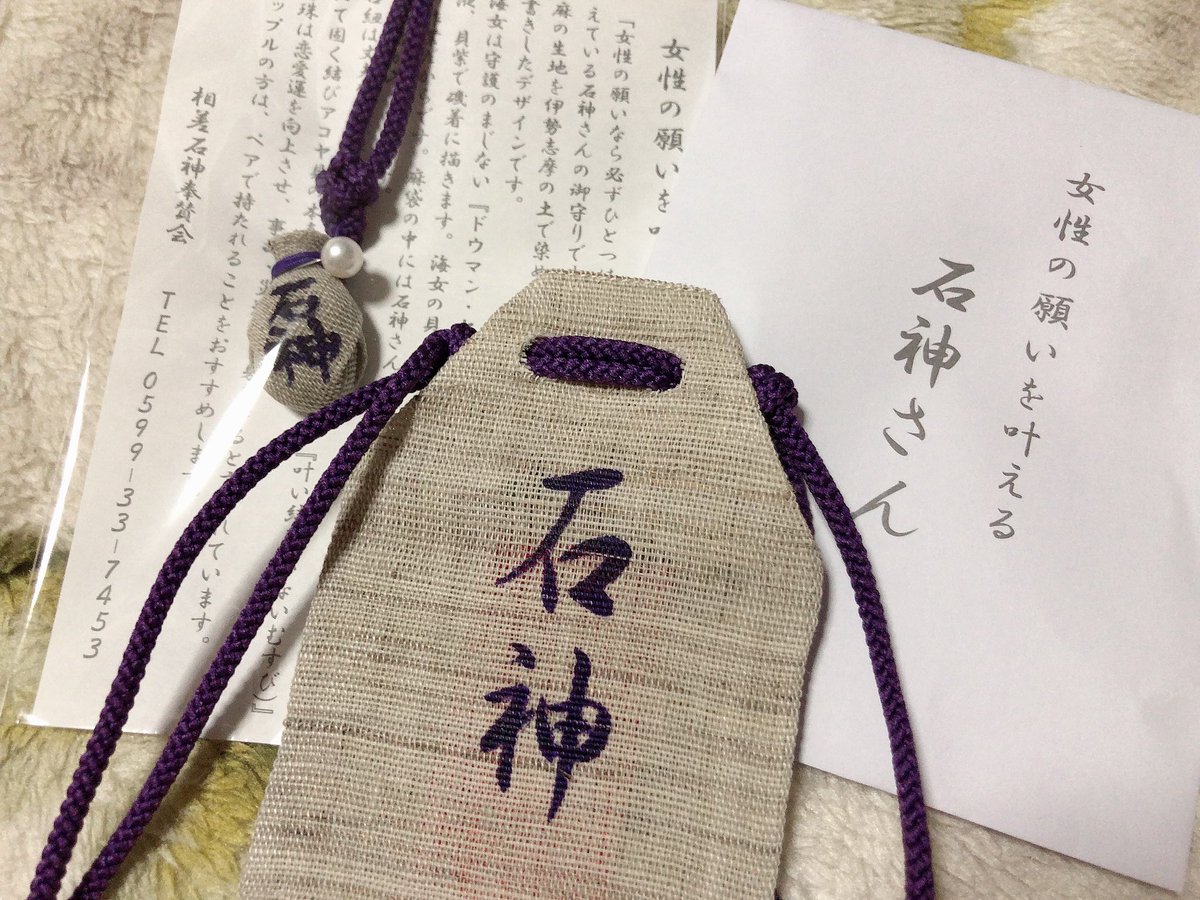 女性の願いを叶える
石神さん
石神
石神
女性の願いを
「女性の願いなら必ずひとつは
えている石神さんの御守りで
麻の生地を伊勢志摩の土で染め
書きしたデザインです。
海女は守護のまじない『ドウマン・
、貝紫で磯着に描きます。 海女の
麻袋の中には石神さん
て固く結びアコヤ
『叶い結 ないむすび)』
珠は恋愛運を向上させ、事 しています。
ップルの方は、ペアで持たれることをおすすめします
相差石神奉賛会 TEL 0599-33-7453